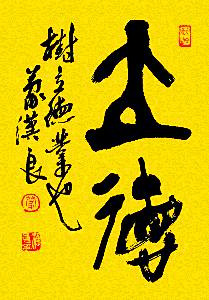 立德
樹立德業也
漢良